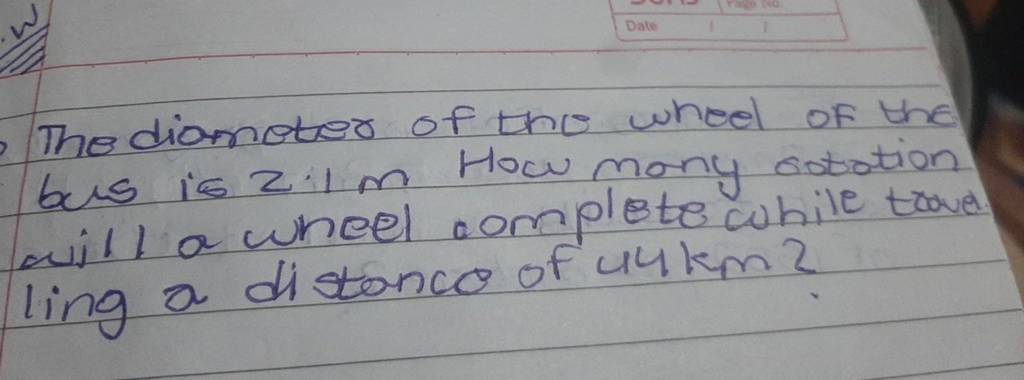 .W
Page No.
Date / /
The diameter of the wheel of the
bus is 2.1 m How many rotation
will a wheel complete while travel-
ling a distance of 44 km ?